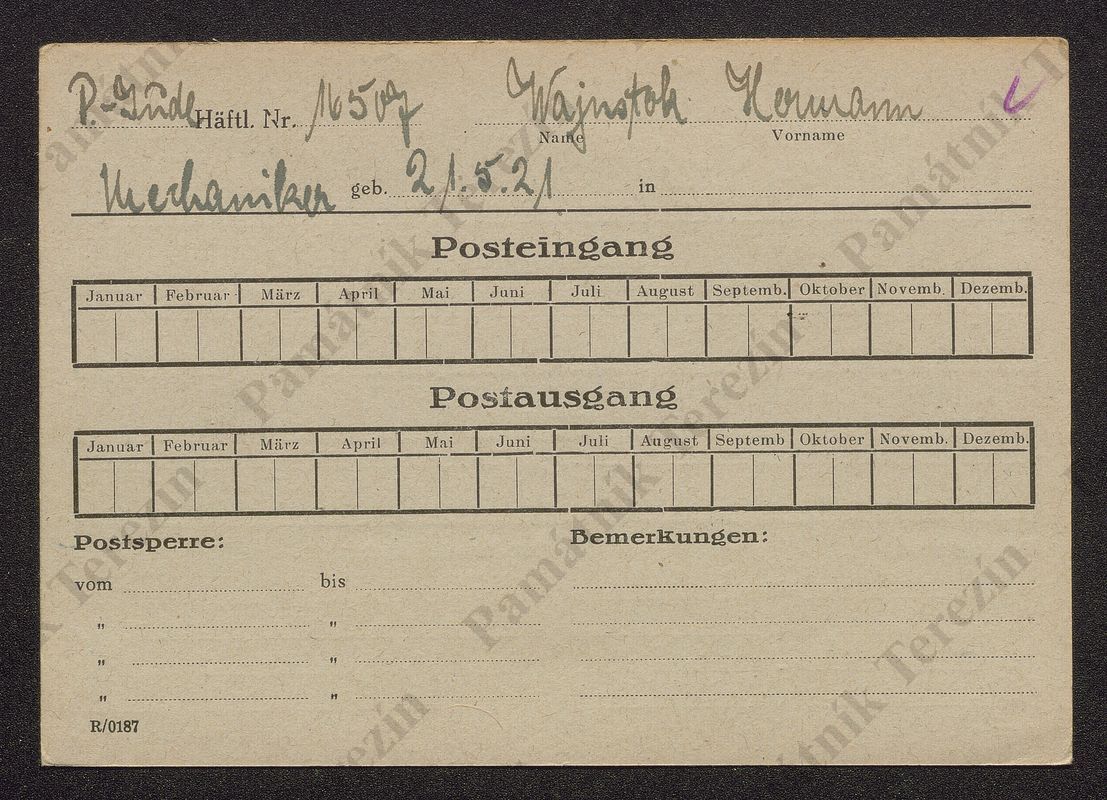 P.-Jude Häftl. Nr. 16507 Wajnstok Hermann
Name Vorname
Mechaniker geb. 21.5.21 in
Posteingang
Januar Februar März April Mai Juni Juli August Septemb. Oktober Novemb. Dezemb.
Postausgang
Januar Februar März April Mai Juni Juli August Septemb Oktober Novemb. Dezemb.
Postsperre: Bemerkungen:
vom bis
" "
" "
" "
R/0187
Památník Terezín